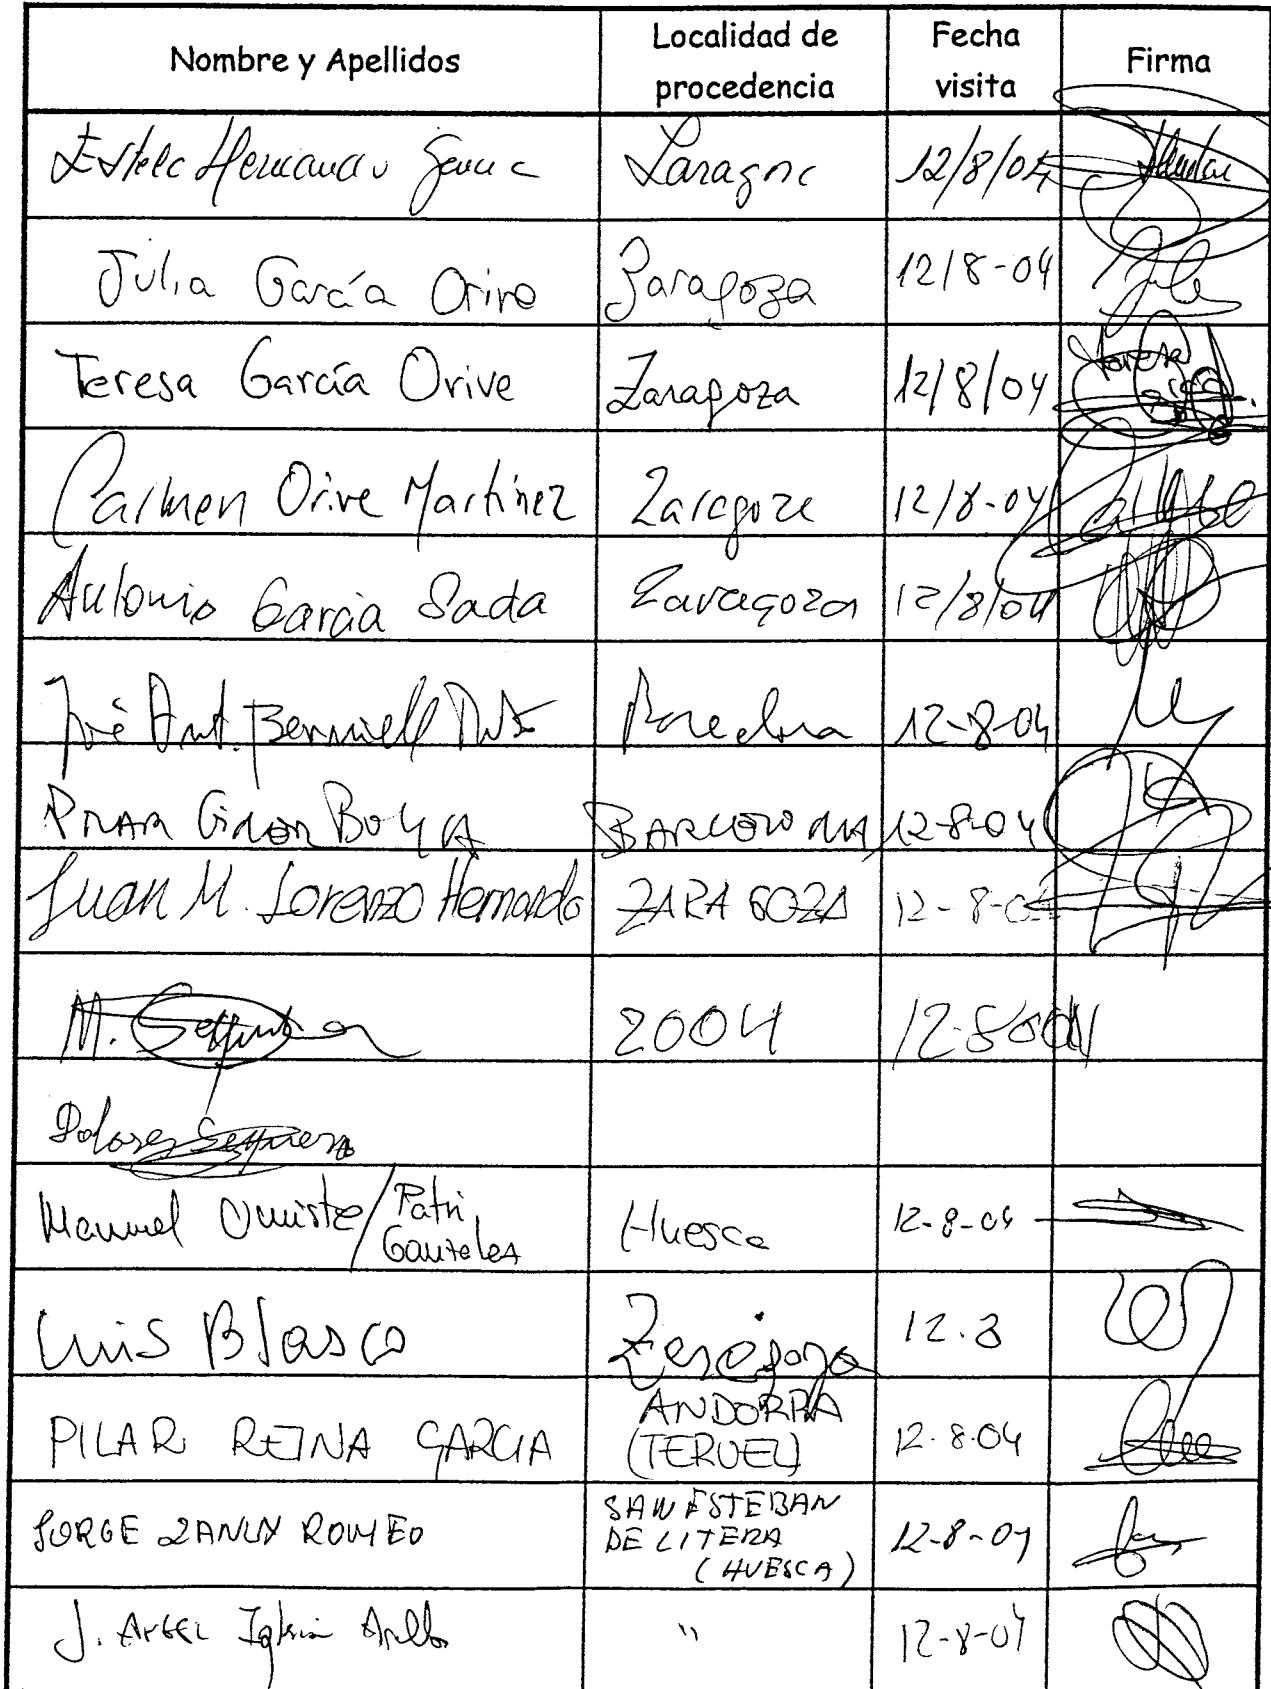 Nombre y Apellidos
Localidad de
procedencia
Fecha
visita
Firma
Estela
12/8/04
Julia García Orive
Zaragoza
12/8-04
Teresa García Orive
Zaragoza
12/8/04
Teresa
Carmen Orive Martinez
Zaragoza
12/8-04
Antonio Garcia Sada
Zaragoza
12/8/04
José Ant.
Barcelona
12-8-04
PILAR
BARCELONA
12-8-04
Juan M. Lorenzo Hernando
ZARAGOZA
12-8-04
M.
2004
12-8
Dolores
Manuel
Patri
Huesca
12-8-04
Luis Blasco
Zaragoza
12.8
PILAR REINA GARCIA
ANDORRA
(TERUEL)
12.8.04
JORGE ROMEO
SAN ESTEBAN
DE LITERA
(HUESCA)
12-8-04
J. ANGEL
"
12-8-04